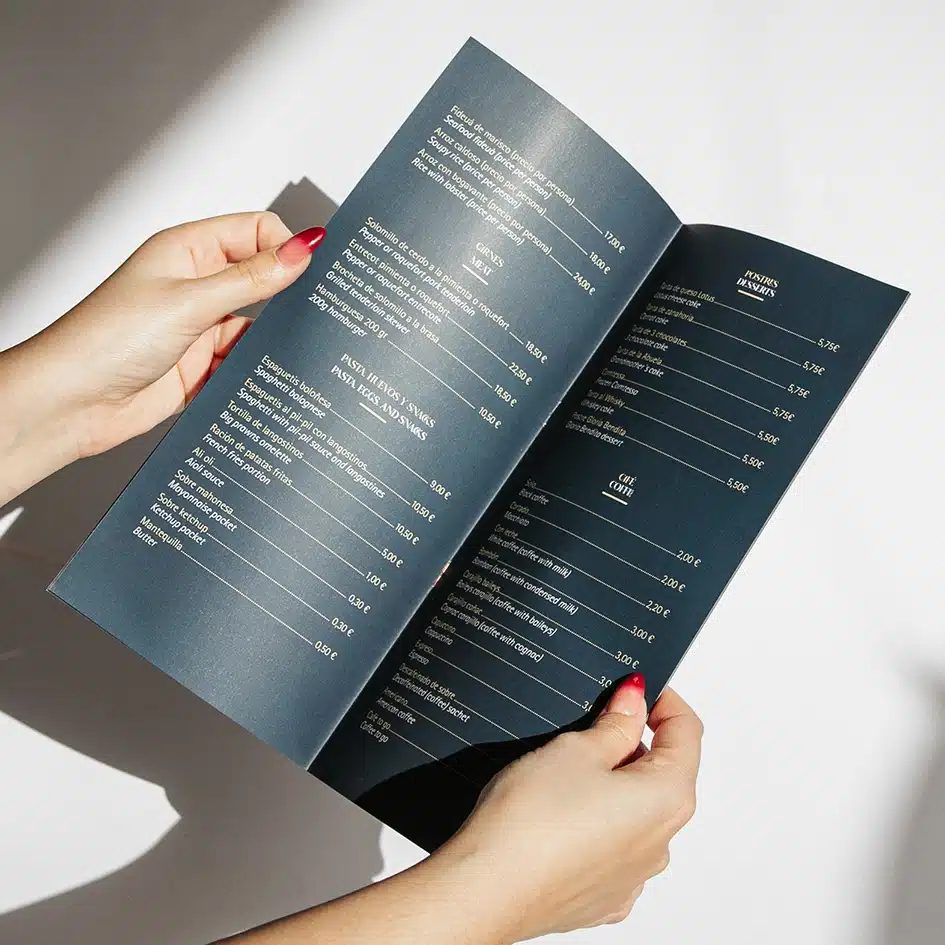 Fideuá de marisco (precio por persona) 17,00 €
Seafood fideuà (price per person)
Arroz caldoso (precio por persona) 18,00 €
Soupy rice (price per person)
Arroz con bogavante (precio por persona) 24,00 €
Rice with lobster (price per person)
CARNES
MEAT
Solomillo de cerdo a la pimienta o roquefort 18,50 €
Pepper or roquefort pork tenderloin
Entrecot pimienta o roquefort 22,50 €
Pepper or roquefort entrecote
Brocheta de solomillo a la brasa 18,50 €
Grilled tenderloin skewer
Hamburguesa 200 gr 10,50 €
200g hamburger
PASTA HUEVOS Y SNACKS
PASTA EGGS AND SNACKS
Espaguetis boloñesa 9,00 €
Spaghetti bolognese
Espaguetis al pil-pil con langostinos 10,50 €
Spaghetti with pil-pil sauce and langostines
Tortilla de langostinos 10,50 €
Big prawns omelette
Ración de patatas fritas 5,00 €
French fries portion
Ali oli 1,00 €
Aioli sauce
Sobre mahonesa 0,30 €
Mayonnaise pocket
Sobre ketchup 0,30 €
Ketchup pocket
Mantequilla 0,50 €
Butter
POSTRES
DESSERTS
Tarta de queso Lotus 5,75€
Lotus cheese cake
Tarta de zanahoria 5,75€
Carrot cake
Tarta de 3 chocolates 5,75€
3 chocolate cake
Tarta de la Abuela 5,75€
Grandmother's cake
Comtessa 5,50€
Frozen Comtessa
Tarta al Whisky 5,50€
Whiskey cake
Postre Gloria Bendita 5,50€
Gloria Bendita dessert
CAFÉ
COFFE
Solo 2,00 €
Black coffee
Cortado 2,00 €
Macchiato
Con leche 2,20 €
White coffee (coffee with milk)
Bombón 3,00 €
Bombon (coffee with condensed milk)
Carajillo baileys 3,00 €
Baileys carajillo (coffee with baileys)
Carajillo coñac 3,0
Cognac carajillo (coffee with cognac)
Capuccino 3,
Cappuccino
Expreso
Espresso
Descafeinado de sobre
Decaffeinated (coffee) sachet
Americano
American coffee
Café to go
Coffee to go